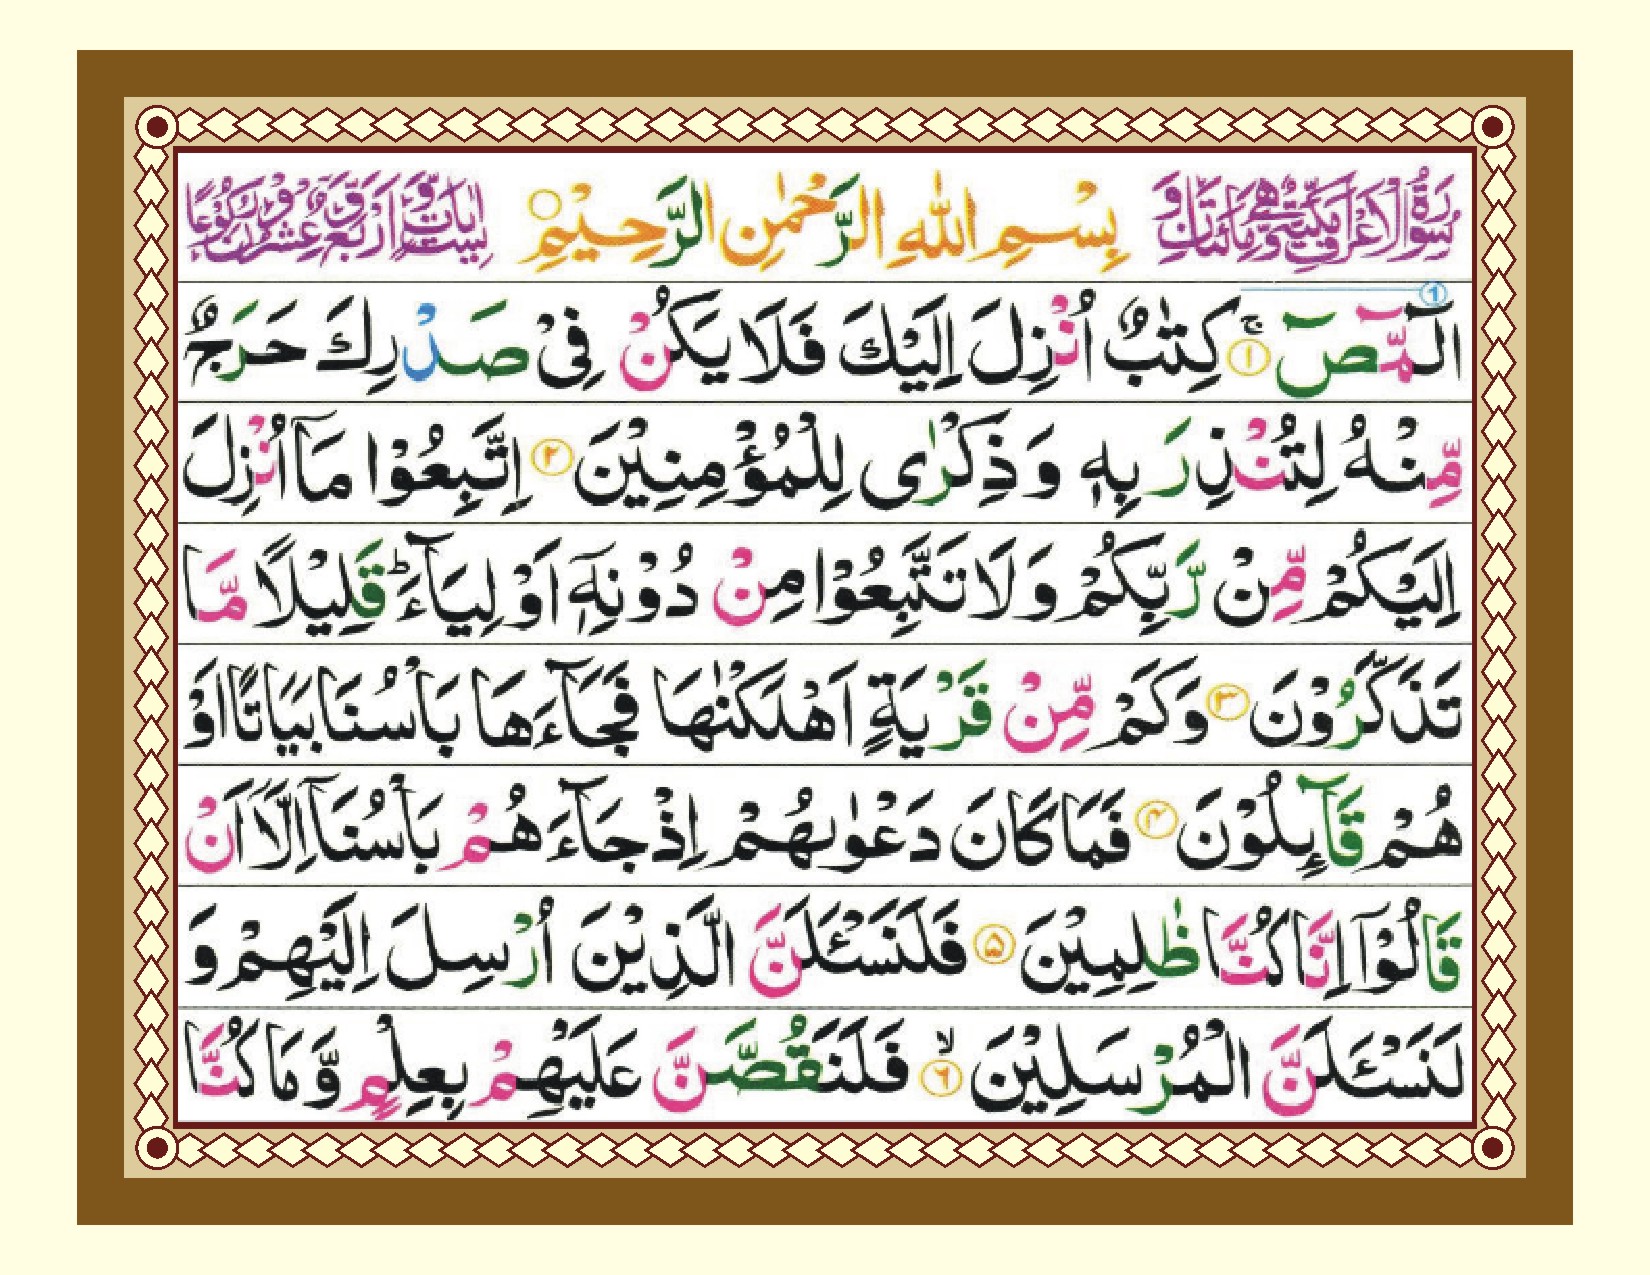 سُوْرَةُ الْاَعْرَافِ مَكِّيَّةٌ وَّهِيَ مِائَتَانِ وَّ بِسْمِ اللّٰهِ الرَّحْمٰنِ الرَّحِيْمِ سِتُّ اٰيَاتٍ وَّاَرْبَعٌ وَّعِشْرُوْنَ رُكُوْعًا
الٓمّٓصٓ ۚ ﴿۱﴾ كِتٰبٌ اُنْزِلَ اِلَيْكَ فَلَا يَكُنْ فِىْ صَدْرِكَ حَرَجٌ
مِّنْهُ لِتُنْذِرَ بِهٖ وَ ذِكْرٰى لِلْمُؤْمِنِيْنَ ﴿۲﴾ اِتَّبِعُوْا مَاۤ اُنْزِلَ
اِلَيْكُمْ مِّنْ رَّبِّكُمْ وَ لَا تَتَّبِعُوْا مِنْ دُوْنِهٖۤ اَوْلِيَآءَ ؕ قَلِيْلًا مَّا
تَذَكَّرُوْنَ ﴿۳﴾ وَكَمْ مِّنْ قَرْيَةٍ اَهْلَكْنٰهَا فَجَآءَهَا بَاْسُنَا بَيَاتًا اَوْ
هُمْ قَآئِلُوْنَ ﴿۴﴾ فَمَا كَانَ دَعْوٰىهُمْ اِذْ جَآءَهُمْ بَاْسُنَاۤ اِلَّاۤ اَنْ
قَالُوْۤا اِنَّا كُنَّا ظٰلِمِيْنَ ﴿۵﴾ فَلَنَسْـَٔلَنَّ الَّذِيْنَ اُرْسِلَ اِلَيْهِمْ وَ
لَنَسْـَٔلَنَّ الْمُرْسَلِيْنَ ۙ ﴿۶﴾ فَلَنَقُصَّنَّ عَلَيْهِمْ بِعِلْمٍ وَّ مَا كُنَّا